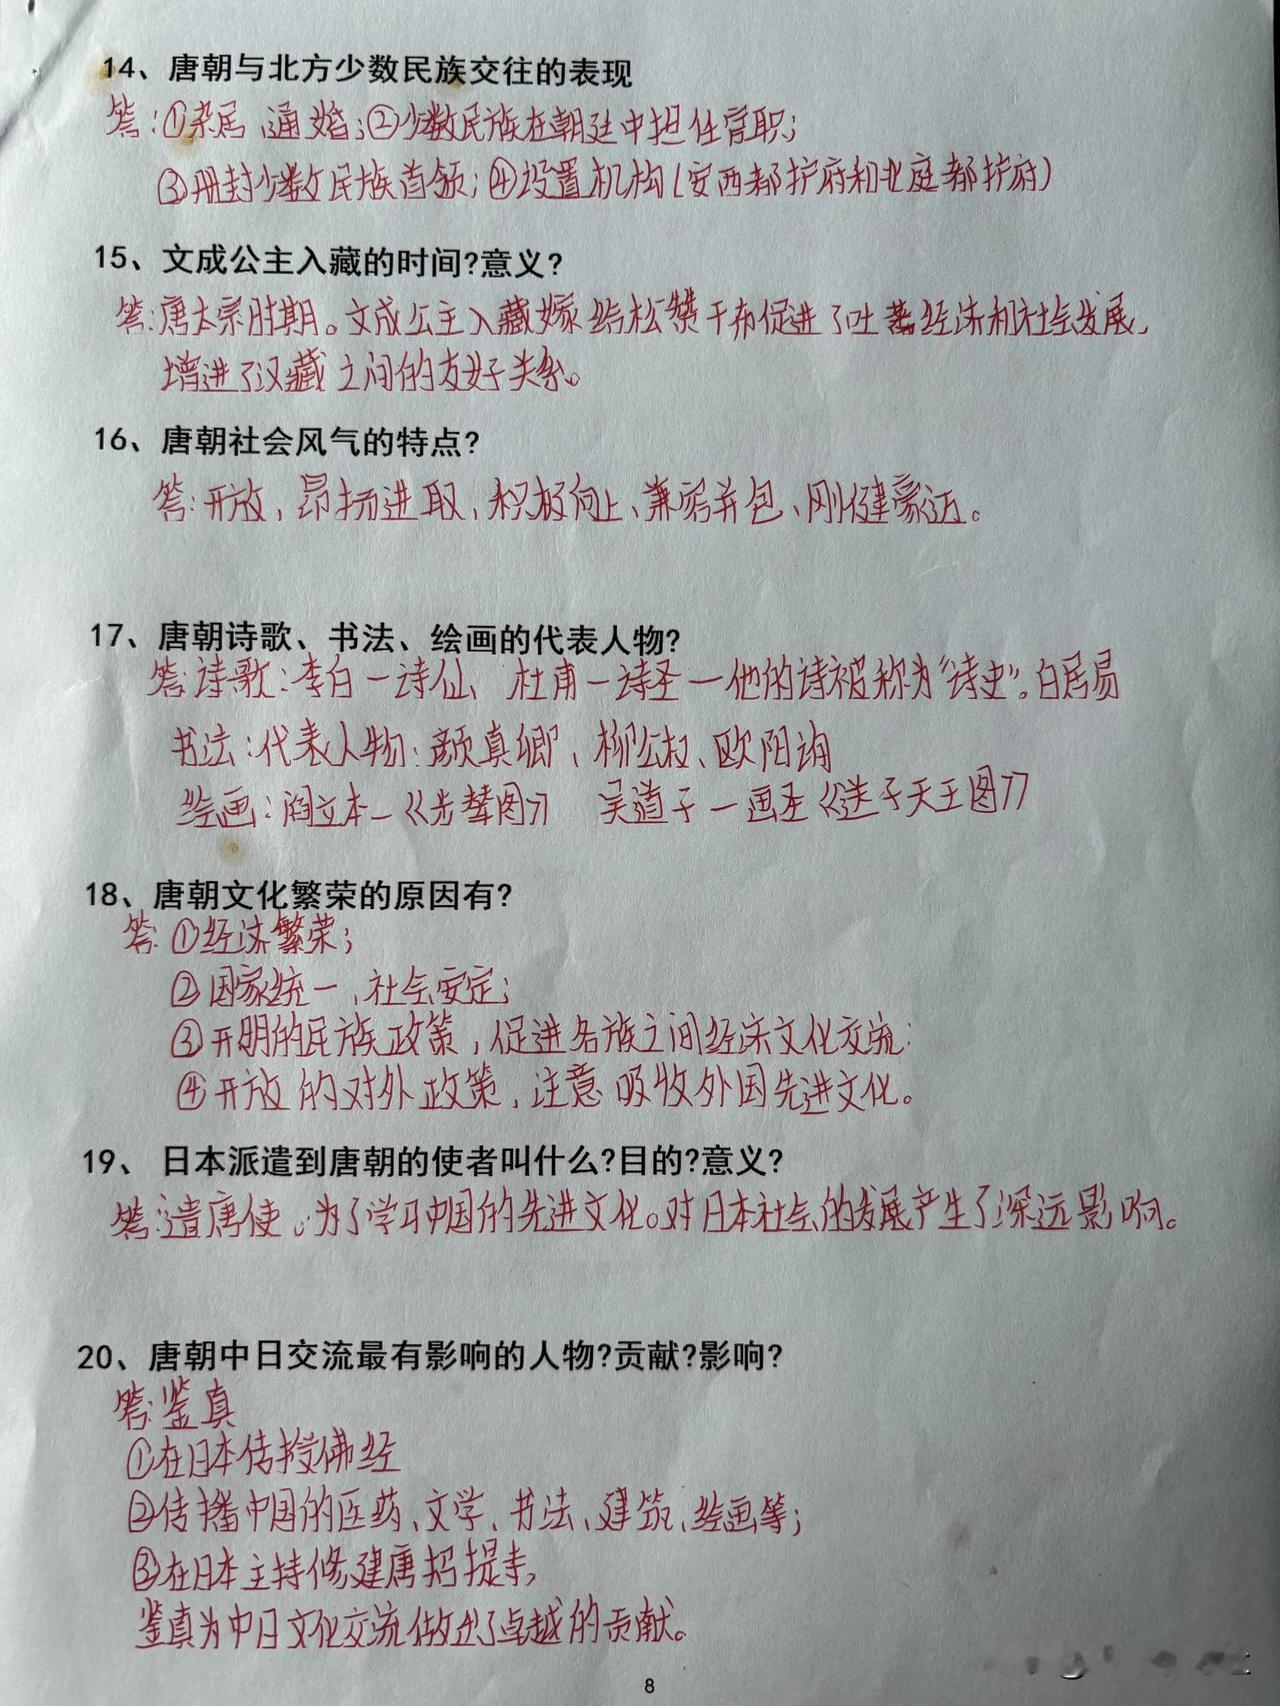 14、唐朝与北方少数民族交往的表现
答:①杂居、通婚;②少数民族在朝廷中担任官职;
③册封少数民族首领;④设置机构(安西都护府和北庭都护府)
15、文成公主入藏的时间?意义?
答:唐太宗时期。文成公主入藏嫁给松赞干布促进了吐蕃经济和社会发展,
增进了汉藏之间的友好关系。
16、唐朝社会风气的特点?
答:开放、昂扬进取、积极向上、兼容并包、刚健豪迈。
17、唐朝诗歌、书法、绘画的代表人物?
答:诗歌:李白—诗仙、杜甫—诗圣—他的诗被称为“诗史”。白居易
书法:代表人物:颜真卿、柳公权、欧阳询
绘画:阎立本—《步辇图》 吴道子—画圣《送子天王图》
18、唐朝文化繁荣的原因有?
答:①经济繁荣;
②国家统一、社会安定;
③开明的民族政策,促进各族之间经济文化交流;
④开放的对外政策,注意吸收外国先进文化。
19、日本派遣到唐朝的使者叫什么?目的?意义?
答:遣唐使。为了学习中国的先进文化。对日本社会的发展产生了深远影响。
20、唐朝中日交流最有影响的人物?贡献?影响?
答:鉴真
①在日本传授佛经
②传播中国的医药、文学、书法、建筑、绘画等;
③在日本主持修建唐招提寺,
鉴真为中日文化交流做出了卓越的贡献。
8